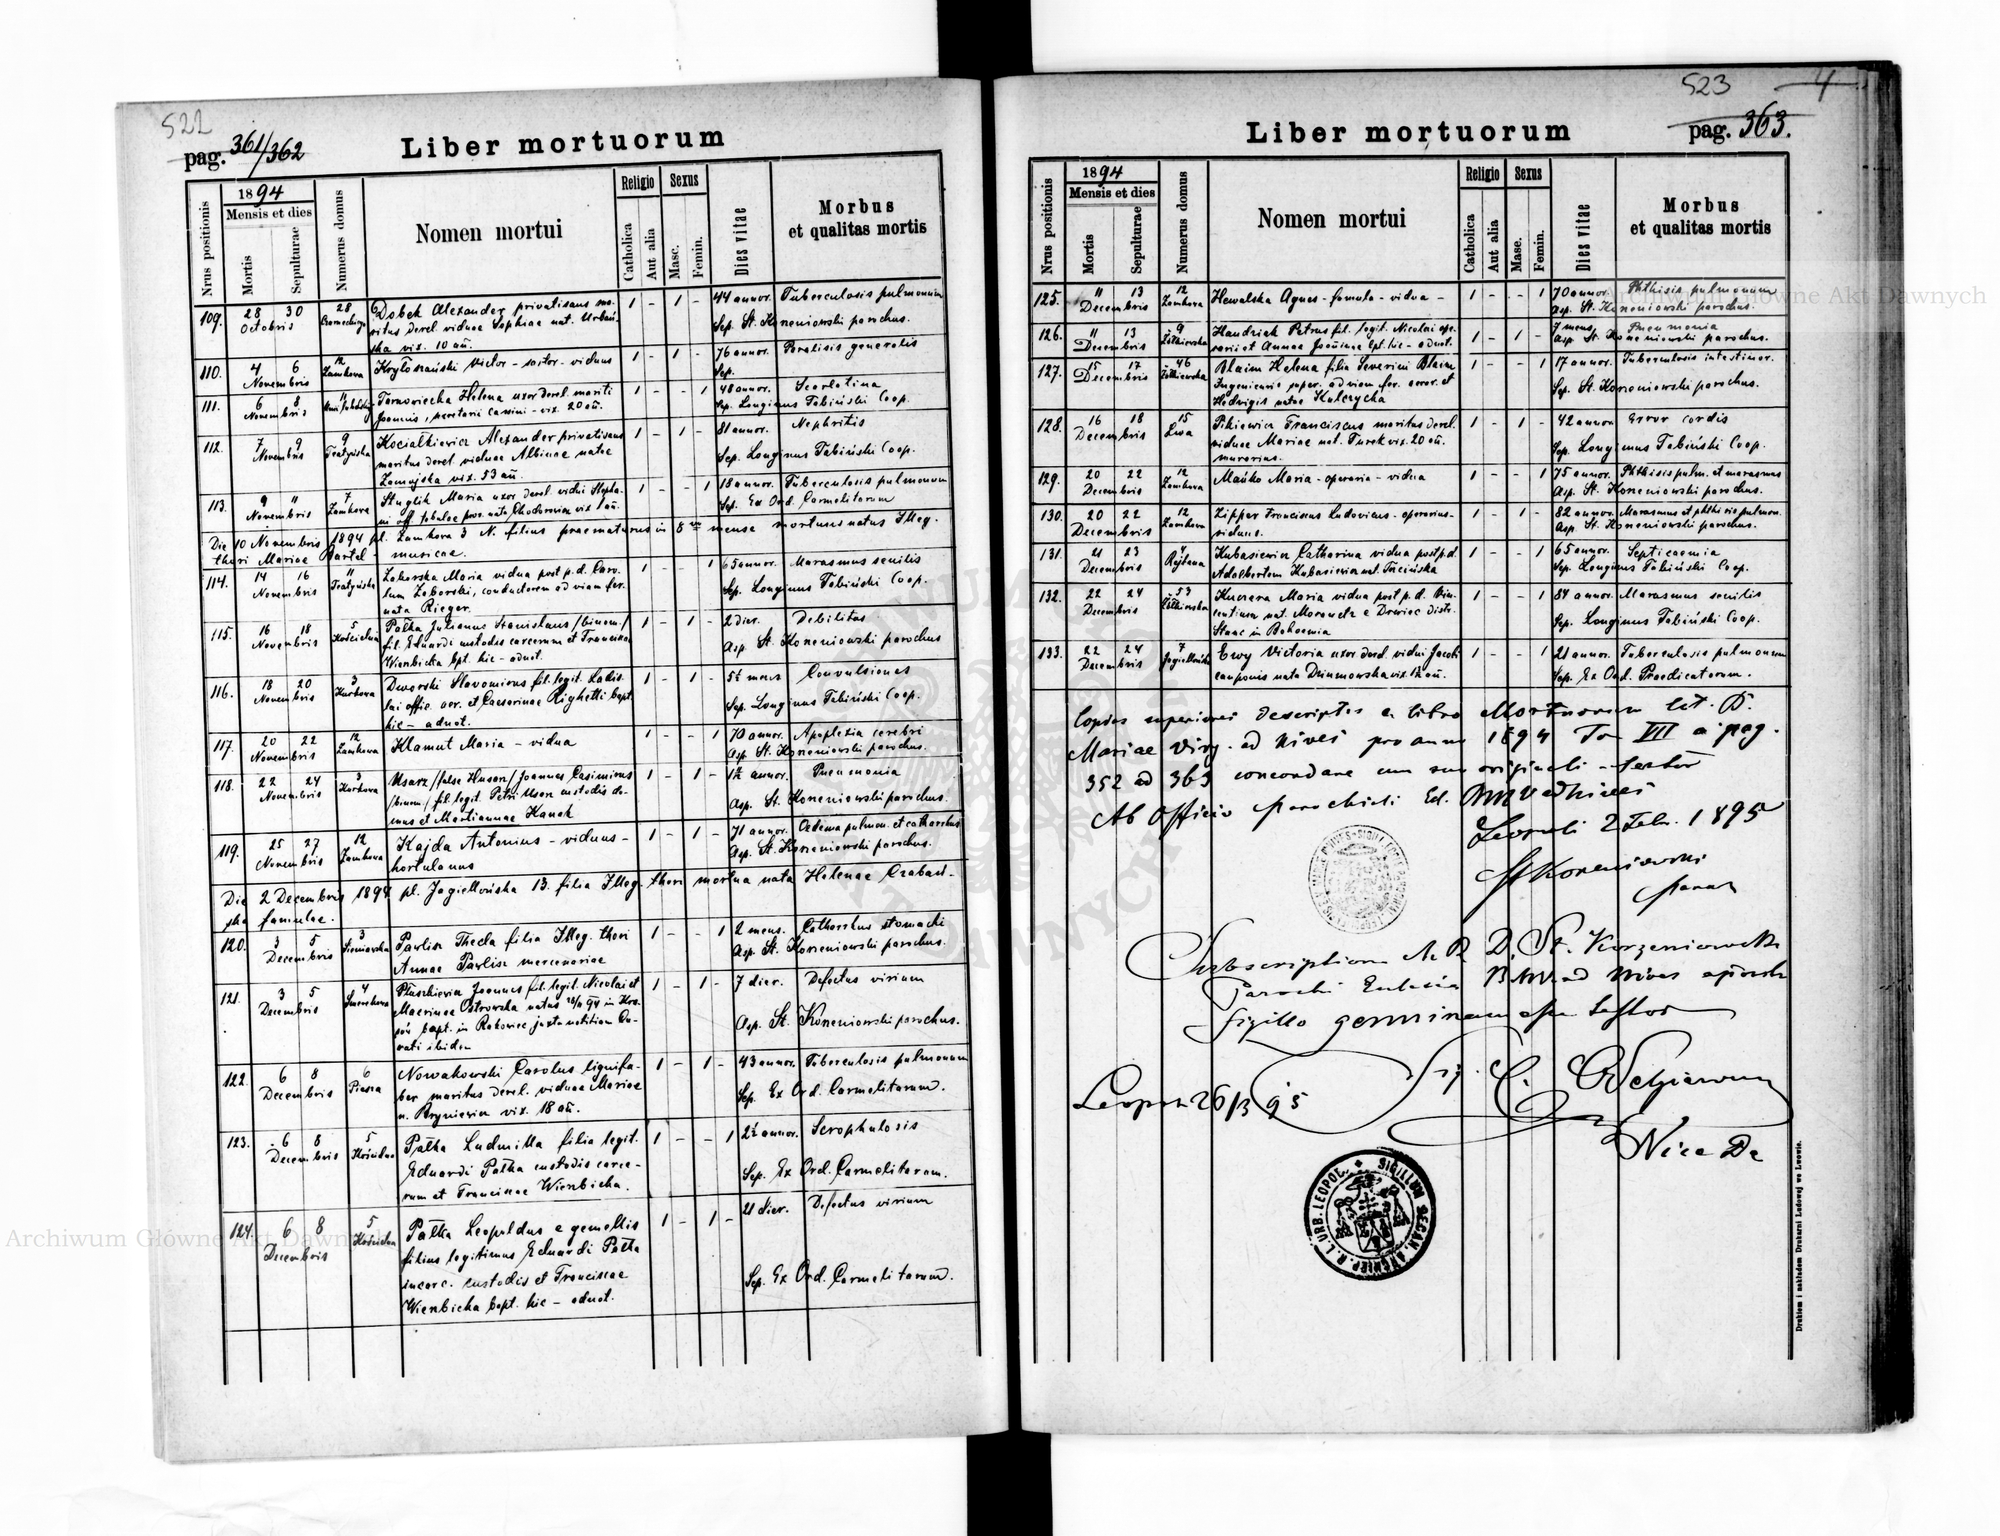 522
pag. 361/362
Liber mortuorum
Nrus positionis
1894
Mensis et dies
Mortis
Sepulturae
Numerus domus
Nomen mortui
Religio
Catholica
Aut alia
Sexus
Masc.
Femin.
Dies vitae
Morbus
et qualitas mortis
109. 28 30 28 Dobek Alexander privatisans ma- 1 - 1 - 44 annor. Tuberculosis pulmonum
Octobris ritus derel. viduae Sophiae nat. Urbań- Sep. St. Korzeniowski parochus.
ska vix. 10 an.
110. 4 6 12 Victor - sartor - viduus 1 - 1 - 76 annor. Paralisis generalis
Novembris Zamkowa Sep.
111. 6 8 11 Tarnowiecka Helena uxor derel. mariti 1 - - 1 48 annor. Scarlatina
Novembris Joannis, vix. 20 an. Sep. Longinus Tabiński Coop.
112. 7 9 9 Kociałkiewicz Alexander privatisans 1 - 1 - 81 annor. Nephritis
Novembris Teatyńska maritus derel. viduae Albinae natae Sep. Longinus Tabiński Coop.
Zamojska vix. 53 an.
113. 9 11 7 Stuglik Maria uxor derel. vidui Stepha- 1 - - 1 18 annor. Tuberculosis pulmonum
Novembris Zamkowa ni off. tabulae prov. nata vix. 1 an. Sep. Ex Ord. Carmelitarum
Die 10 Novembris 1894 pl. Zamkowa 3 N. filius praematurus in 8vo mense mortuus natus Illeg.
thori Mariae Bartel - musicae.
114. 14 16 11 Zaborska Maria vidua post p. d. Caro- 1 - - 1 65 annor. Marasmus senilis
Novembris Teatyńska lum Zaborski, conductorem ad viam fer. Sep. Longinus Tabiński Coop.
nata Rieger.
115. 16 18 5 Pałka Julianus Stanislaus /binom./ 1 - 1 - 2 dier. Debilitas
Novembris Kościelna fil. Eduardi custodis carcerum et Francisca Asp. St. Korzeniowski parochus
Wierzbicka bpt. hic - adnot.
116. 18 20 3 Dworski Slavomirus fil. legit. Ladis- 1 - 1 - 5½ mens Convulsiones
Novembris Kurkowa lai offic. aer. et Caesarinae Righetti bapt. Sep. Longinus Tabiński Coop.
hic - adnot.
117. 20 22 12 Klamut Maria - vidua 1 - - 1 70 annor. Apoplexia cerebri
Novembris Zamkowa Asp. St. Korzeniowski parochus.
118. 22 24 3 Usarz /false Husar/ Joannes Casimirus 1 - 1 - 1½ annor. Pneumonia
Novembris Kurkowa /binom/ fil. legit. Petri Usarz custodis do- Asp. St. Korzeniowski parochus.
mus et Mariannae Kanak
119. 25 27 12 Kajda Antonius - viduus - 1 - 1 - 71 annor. Oedema pulmon. et catharrhus
Novembris Zamkowa hortulanus Asp. St. Korzeniowski parochus.
Die 2 Decembris 1894 pl. Jagiellońska 13. filia Illeg. thori mortua nata Helenae Czaban-
ska famulae.
120. 3 5 3 Pavlisz Thecla filia Illeg. thori 1 - - 1 2 mens. Catharrhus stomachi
Decembris Sieniawska Annae Pavlisz mercenariae Asp. St. Korzeniowski parochus.
121. 3 5 4 Płaszkiewicz Joannes fil. legit. Nicolai et 1 - 1 - 7 dier. Defectus virium
Decembris Smerekowa Macrinae Ostrowska natus 94 in
bapt. in Rakowiec juxta notitiam Cu- Asp. St. Korzeniowski parochus.
rati ibidem
122. 6 8 6 Nowakowski Carolus lignifa- 1 - 1 - 43 annor. Tuberculosis pulmonum
Decembris Piesza ber maritus derel. viduae Mariae Sep. Ex Ord. Carmelitarum.
n. Bryniewicz vix. 18 an.
123. 6 8 5 Pałka Ludmilla filia legit. 1 - - 1 2½ annor. Scrophulosis
Decembris Kościelna Eduardi Pałka custodis carce- Sep. Ex Ord. Carmelitarum.
rum et Franciscae Wierzbicka.
124. 6 8 5 Pałka Leopoldus e gemellis 1 - 1 - 21 dier. Defectus virium
Decembris Kościelna filius legitimus Eduardi Pałka
incarc. custodis et Franciscae Sep. Ex Ord. Carmelitarum.
Wierzbicka bapt. hic - adnot.
523
4
Liber mortuorum
pag. 363.
Nrus positionis
1894
Mensis et dies
Mortis
Sepulturae
Numerus domus
Nomen mortui
Religio
Catholica
Aut alia
Sexus
Masc.
Femin.
Dies vitae
Morbus
et qualitas mortis
125. 11 13 12 Hewalska Agnes - famula - vidua - 1 - - 1 70 annor. Phthisis pulmonum
Decembris Zamkowa Asp. St. Korzeniowski parochus.
126. 11 13 9 Handziak Petrus fil. legit. Nicolai ope- 1 - 1 - 7 mens. Pneumonia
Decembris Żółkiewska rarii et Annae bpt. hic - adnot. Asp. St. Korzeniowski parochus.
127. 15 17 46 Blaim Helena filia Severini Blaim 1 - - 1 17 annor. Tuberculosis intestinor.
Decembris Żółkiewska Ingenieurii super. ad viam fer. aerar. et Sep. St. Korzeniowski parochus.
Hedvigis natae Kulczycka
128. 16 18 15 Pikiewicz Franciscus maritus derel. 1 - 1 - 42 annor Error cordis
Decembris Lwia viduae Mariae nat. Turek vix. 20 an. Sep. Longinus Tabiński Coop.
murarius.
129. 20 22 12 Mańko Maria - operaria - vidua 1 - - 1 75 annor. Phthisis pulm. et marasmus
Decembris Zamkowa Asp. St. Korzeniowski parochus.
130. 20 22 12 Zipper Franciscus Ludovicus - operarius - 1 - 1 - 82 annor. Marasmus et phthisis pulmon.
Decembris Zamkowa viduus. Asp. St. Korzeniowski parochus.
131. 21 23 4 Kubasiewicz Catharina vidua post p.d. 1 - - 1 65 annor. Septicaemia
Decembris Rejtana Adalbertum Kubasiewicz nat. Trzcińska Sep. Longinus Tabiński Coop.
132. 22 24 53 Kuczera Maria vidua post p. d. Vin- 1 - - 1 84 annor. Marasmus senilis
Decembris Żółkiewska centium nat. e distr. Sep. Longinus Tabiński Coop.
in Bohoemia
133. 22 24 7 Ewy Victoria uxor derel. vidui Jacobi 1 - - 1 21 annor. Tuberculosis pulmonum
Decembris Jagiellońska cauponis nata vix. 1½ an. Sep. Ex Ord. Praedicatorum.
Copias superiores descriptas e libro Mortuorum lat. B.
Mariae Virg. ad Nives pro anno 1894 Tom VII a pag.
352 ad 363 concordare cum suo originali - testor
Ab Officio parochiali Ecl. BMV ad Nives
Leopoli 2 Febr. 1895
St Korzeniowski
paroch
Subscriptionem A. R. D. St. Korzeniowski
Parochi Ecclesiae B.M.V. ad Nives
Sigillo germinam esse testor
Leopoli 26/3 95
R. L. URB. LEOPOL. SIGILLUM DECAN. ARCHIEP.
Drukiem i nakładem Drukarni Ludowej we Lwowie.
Archiwum Główne Akt Dawnych
Archiwum Główne Akt Dawnych